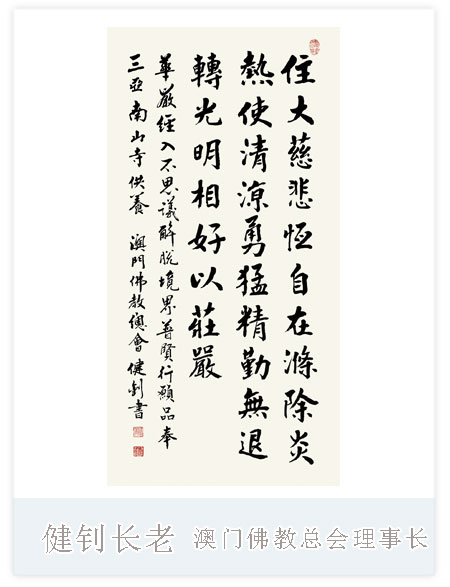 住大慈悲恆自在滌除炎
熱使清涼勇猛精勤無退
轉光明相好以莊嚴
華嚴經入不思議解脫境界普賢行願品奉
三亞南山寺供養 澳門佛教總會 健釗書
健钊长老 澳门佛教总会理事长